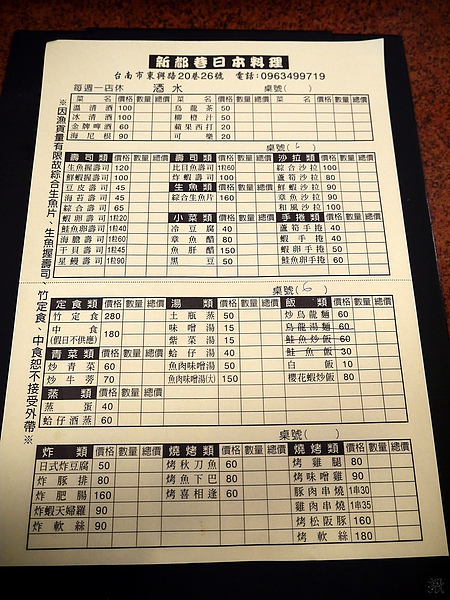 新都巷日本料理
台南市東興路20巷26號 電話:0963499719
每週一店休 酒水 桌號( )
菜名 價格 數量 總價 菜名 價格 數量 總價 菜名 價格 數量 總價
溫清酒 100 烏龍茶 50
冰清酒 100 柳橙汁 50
金牌啤酒 60 蘋果西打 20
海尼根 90 可樂 20
※因漁貨量有限故綜合生魚片、生魚握壽司
竹定食、中食恕不接受外帶※
桌號( 6 )
壽司類 價格 數量 總價 壽司類 價格 數量 總價 沙拉類 價格 數量 總價
生魚壽司 120 比目魚壽司 1粒60 綜合沙拉 100
鮮蝦握壽司 100 炸蝦壽司 100 蘆筍沙拉 80
豆皮壽司 45 生魚類 價格 數量 總價 鮮蝦沙拉 90
海苔壽司 45 綜合生魚片 160 章魚沙拉 90
綜合壽司 65 和風沙拉 100
蝦卵壽司 1粒20 小菜類 價格 數量 總價 手捲類 價格 數量 總價
鮭魚卵壽司 1粒40 冷豆腐 40 蘆筍手捲 40
海膽壽司 1粒60 章魚醋 80 蝦手捲 40
干貝壽司 1粒45 魚肝醋 150 蝦卵手捲 50
星鰻壽司 1粒90 黑豆 50 鮭魚卵手捲 60
桌號( 6 )
定食類 價格 數量 總價 湯類 價格 數量 總價 飯類 價格 數量 總價
竹定食 280 土瓶蒸 50 炒烏龍麵 60
中食 (假日不供應) 180 味噌湯 15 烏龍湯麵 60
紫菜湯 15 鮭魚炒飯 60
青菜類 價格 數量 總價 蛤仔湯 40 鮭魚飯 30
炒青菜 60 魚肉味噌湯 50 白飯 10
炒牛蒡 70 魚肉味噌湯(大) 150 櫻花蝦炒飯 80
蒸類 價格 數量 總價
蒸蛋 40
蛤仔酒蒸 60
桌號( )
炸類 價格 數量 總價 燒烤類 價格 數量 總價 燒烤類 價格 數量 總價
日式炸豆腐 50 烤秋刀魚 60 烤雞腿 80
炸豚排 80 烤魚下巴 80 烤味噌雞 90
炸肥腸 160 烤喜相逢 60 豚肉串燒 1串30
炸蝦天婦羅 90 雞肉串燒 1串35
炸軟絲 90 烤松阪豚 160
烤軟絲 180